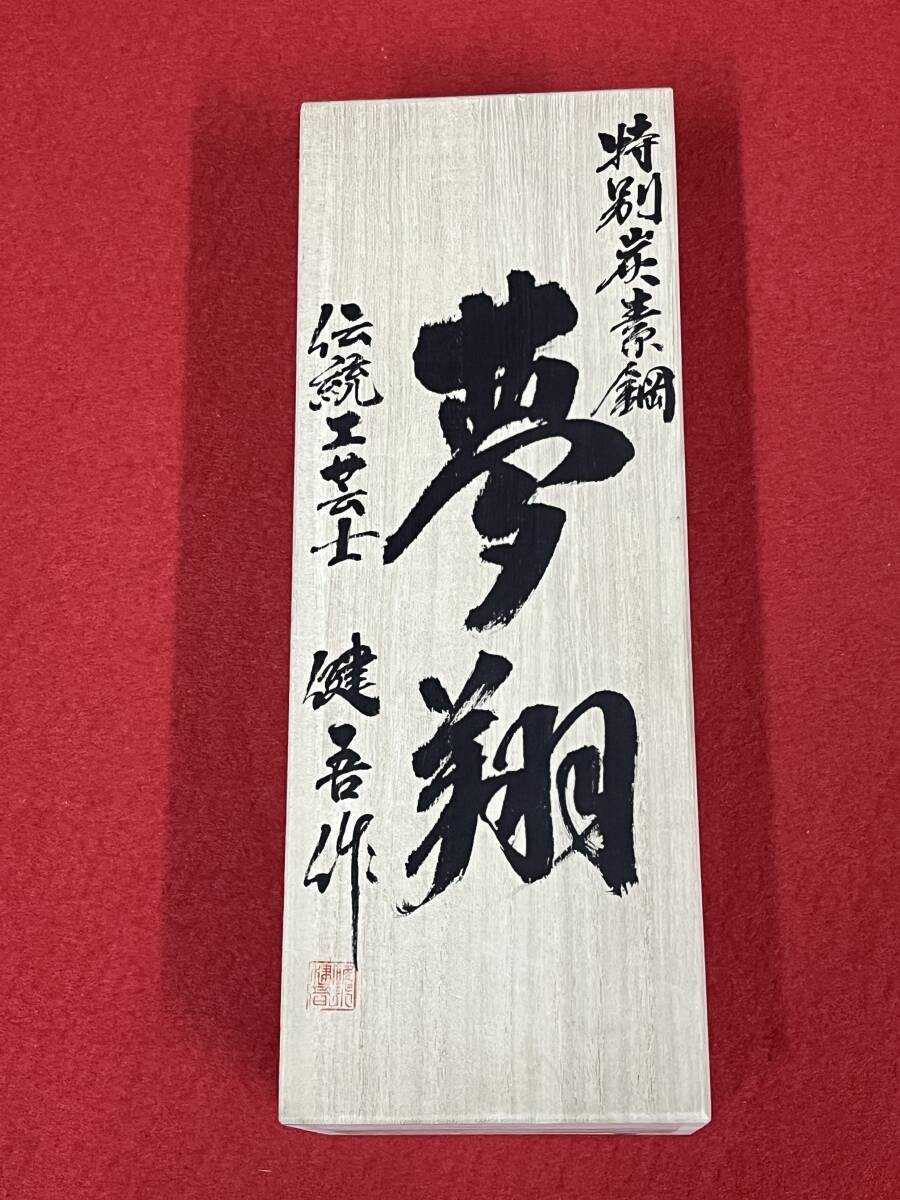 特別炭素鋼
夢翔
伝統工芸士 健吾作